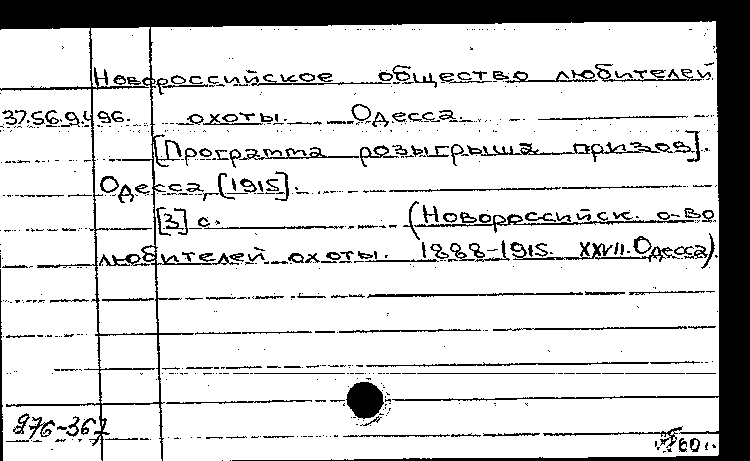 Новороссийское общество любителей
37.56.9.496. охоты. Одесса.
[Программа розыгрыша призов].
Одесса, [1915].
[3] с. (Новороссийск. о-во
любителей охоты. 1888-1915. XXVII. Одесса)
276-367
60